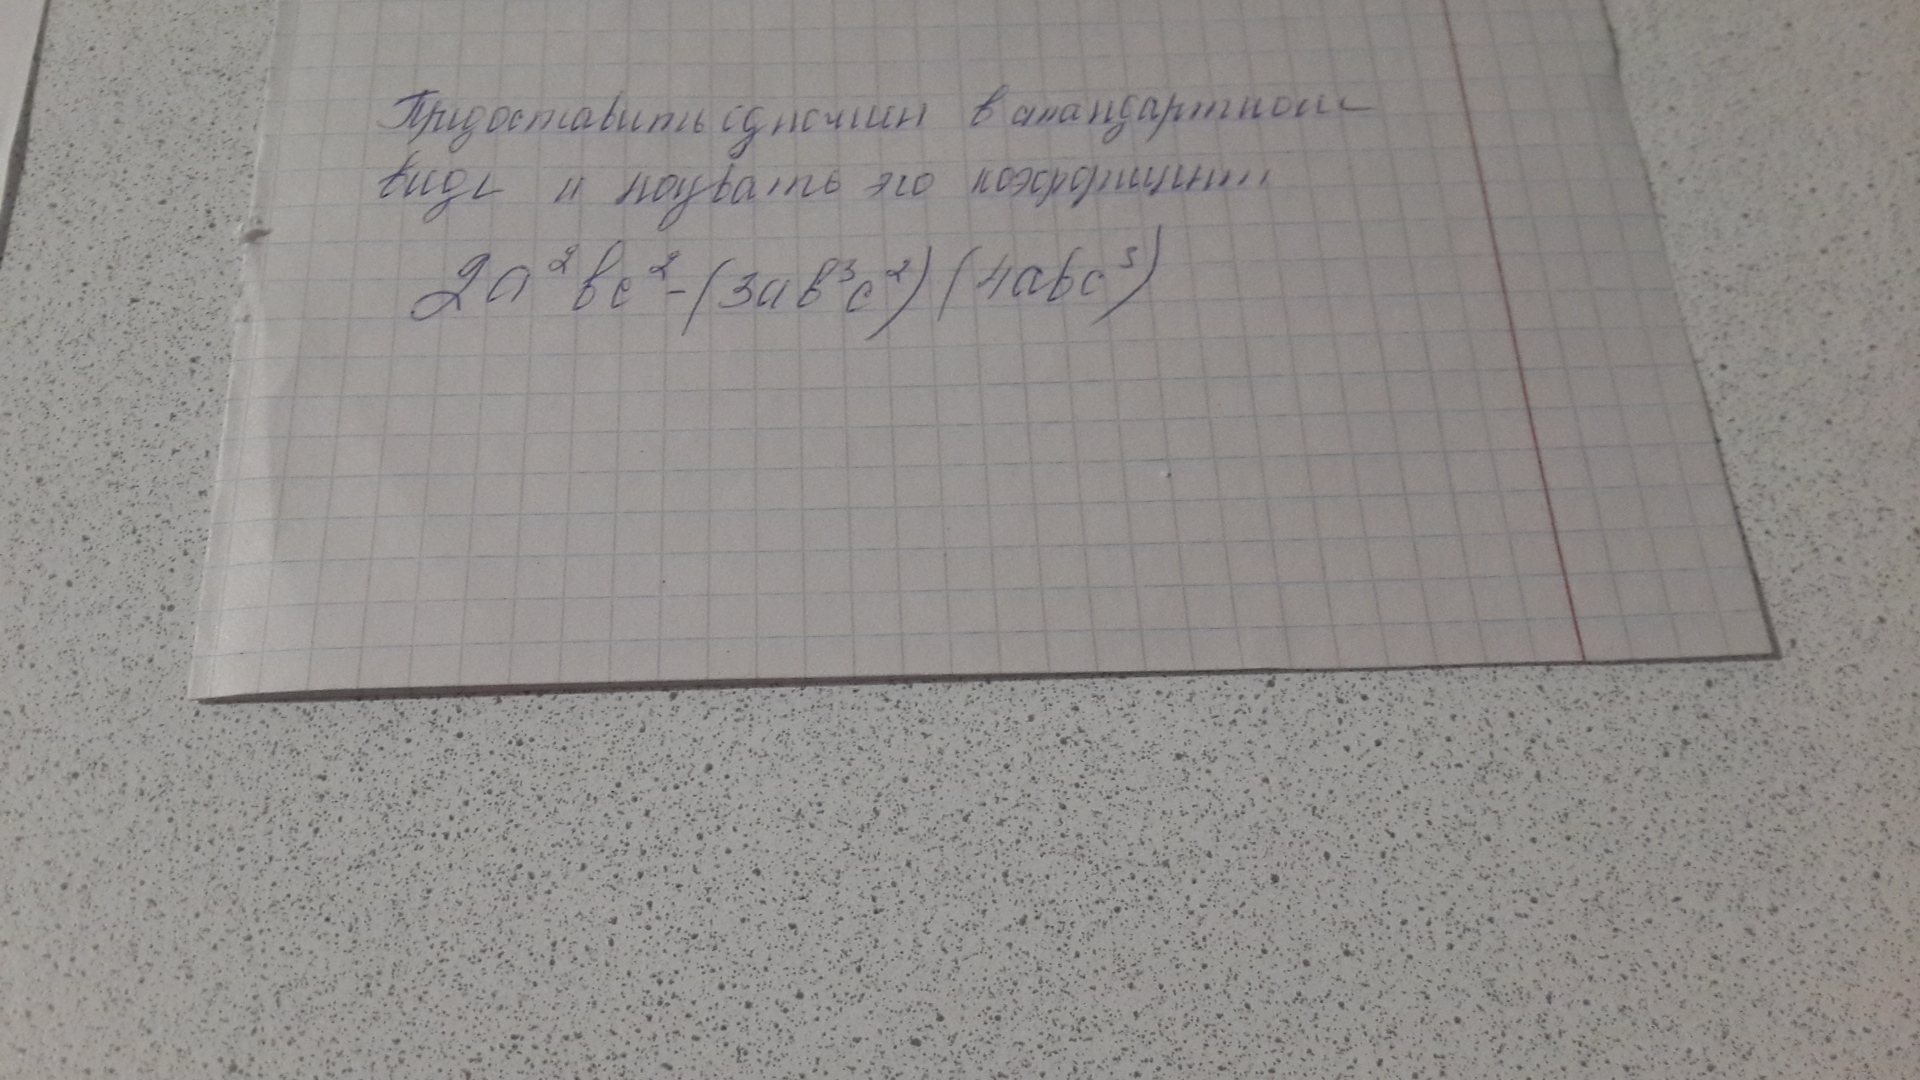 Предоставить одночлен в стандартном
виде и назвать его коэффициент
2a²bc²-(3ab³c²)(4abc³)